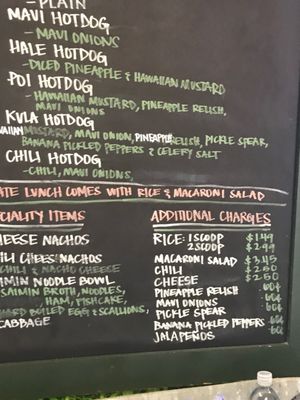 - PLAIN
MAVI HOTDOG
- MAVI ONIONS
HALE HOTDOG
- DICED PINEAPPLE & HAWAIIAN MUSTARD
POI HOTDOG
- HAWAIIAN MUSTARD, PINEAPPLE RELISH,
MAVI ONIONS
KULA HOTDOG
WAIIAN MUSTARD, MAVI ONION, PINEAPPLE RELISH, PICKLE SPEAR,
BANANA PICKLED PEPPERS & CELERY SALT
CHILI HOTDOG
- CHILI, MAVI ONIONS,
ATE LUNCH COMES WITH RICE & MACARONI SALAD
CIALITY ITEMS
HEESE NACHOS
ILI CHEES NACHOS
CHILI & NACHO CHEESE
IMIN NOODLE BOWL
SAIMIN BROTH, NOODLES,
HAM, FISHCAKE,
HARD BOILED EGG & SCALLIONS,
CABBAGE
ADDITIONAL CHARGES
RICE: 1 SCOOP $1.49
2 SCOOP $2.99
MACARONI SALAD $2.45
CHILI $2.50
CHEESE $2.50
PINEAPPLE RELISH .60¢
MAVI ONIONS .60¢
PICKLE SPEAR .60¢
BANANA PICKLED PEPPERS .60¢
JALAPEÑOS .60¢